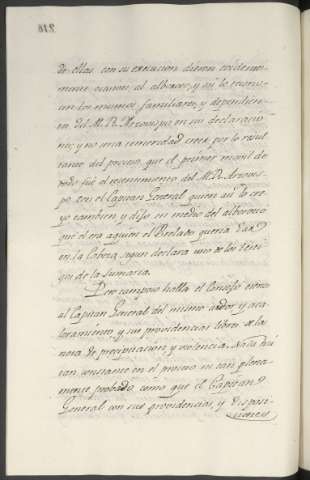 218
de ellas con su execucion dieron evidentemente
ocasion al alboroto, y asi lo reconocen
los mismos familiares, y dependientes
del M. R. Arzobispo en sus declaraciones;
y no seria temeridad creer por lo resultante
del proceso, que el primer movil de
todo fué el resentimiento del M. R. Arzobispo
con el Capitan General quien asi lo creyo
tambien, y dijo en medio del alboroto
que el era aquien el Prelado queria dar
en la Cabeza segun declara uno de los testigos
de la sumaria.
Pero tampoco halla el Consejo exento
al Capitan General del mismo ardor y acaloramiento,
y sus providencias libres de la
nota de precipitacion, y violencia. Nada hai
tan constante en el proceso ni tan plenamente
probado, como que el Capitan
General con sus providencias, y disposiciones